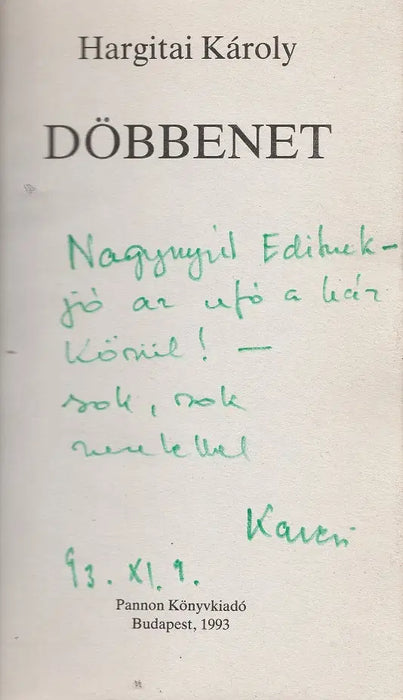 Hargitai Károly
DÖBBENET
Nagynyúl Editnek –
jó az ufó a ház
körül! –
sok, sok
szeretettel
Karcsi
93. XI. 9.
Pannon Könyvkiadó
Budapest, 1993